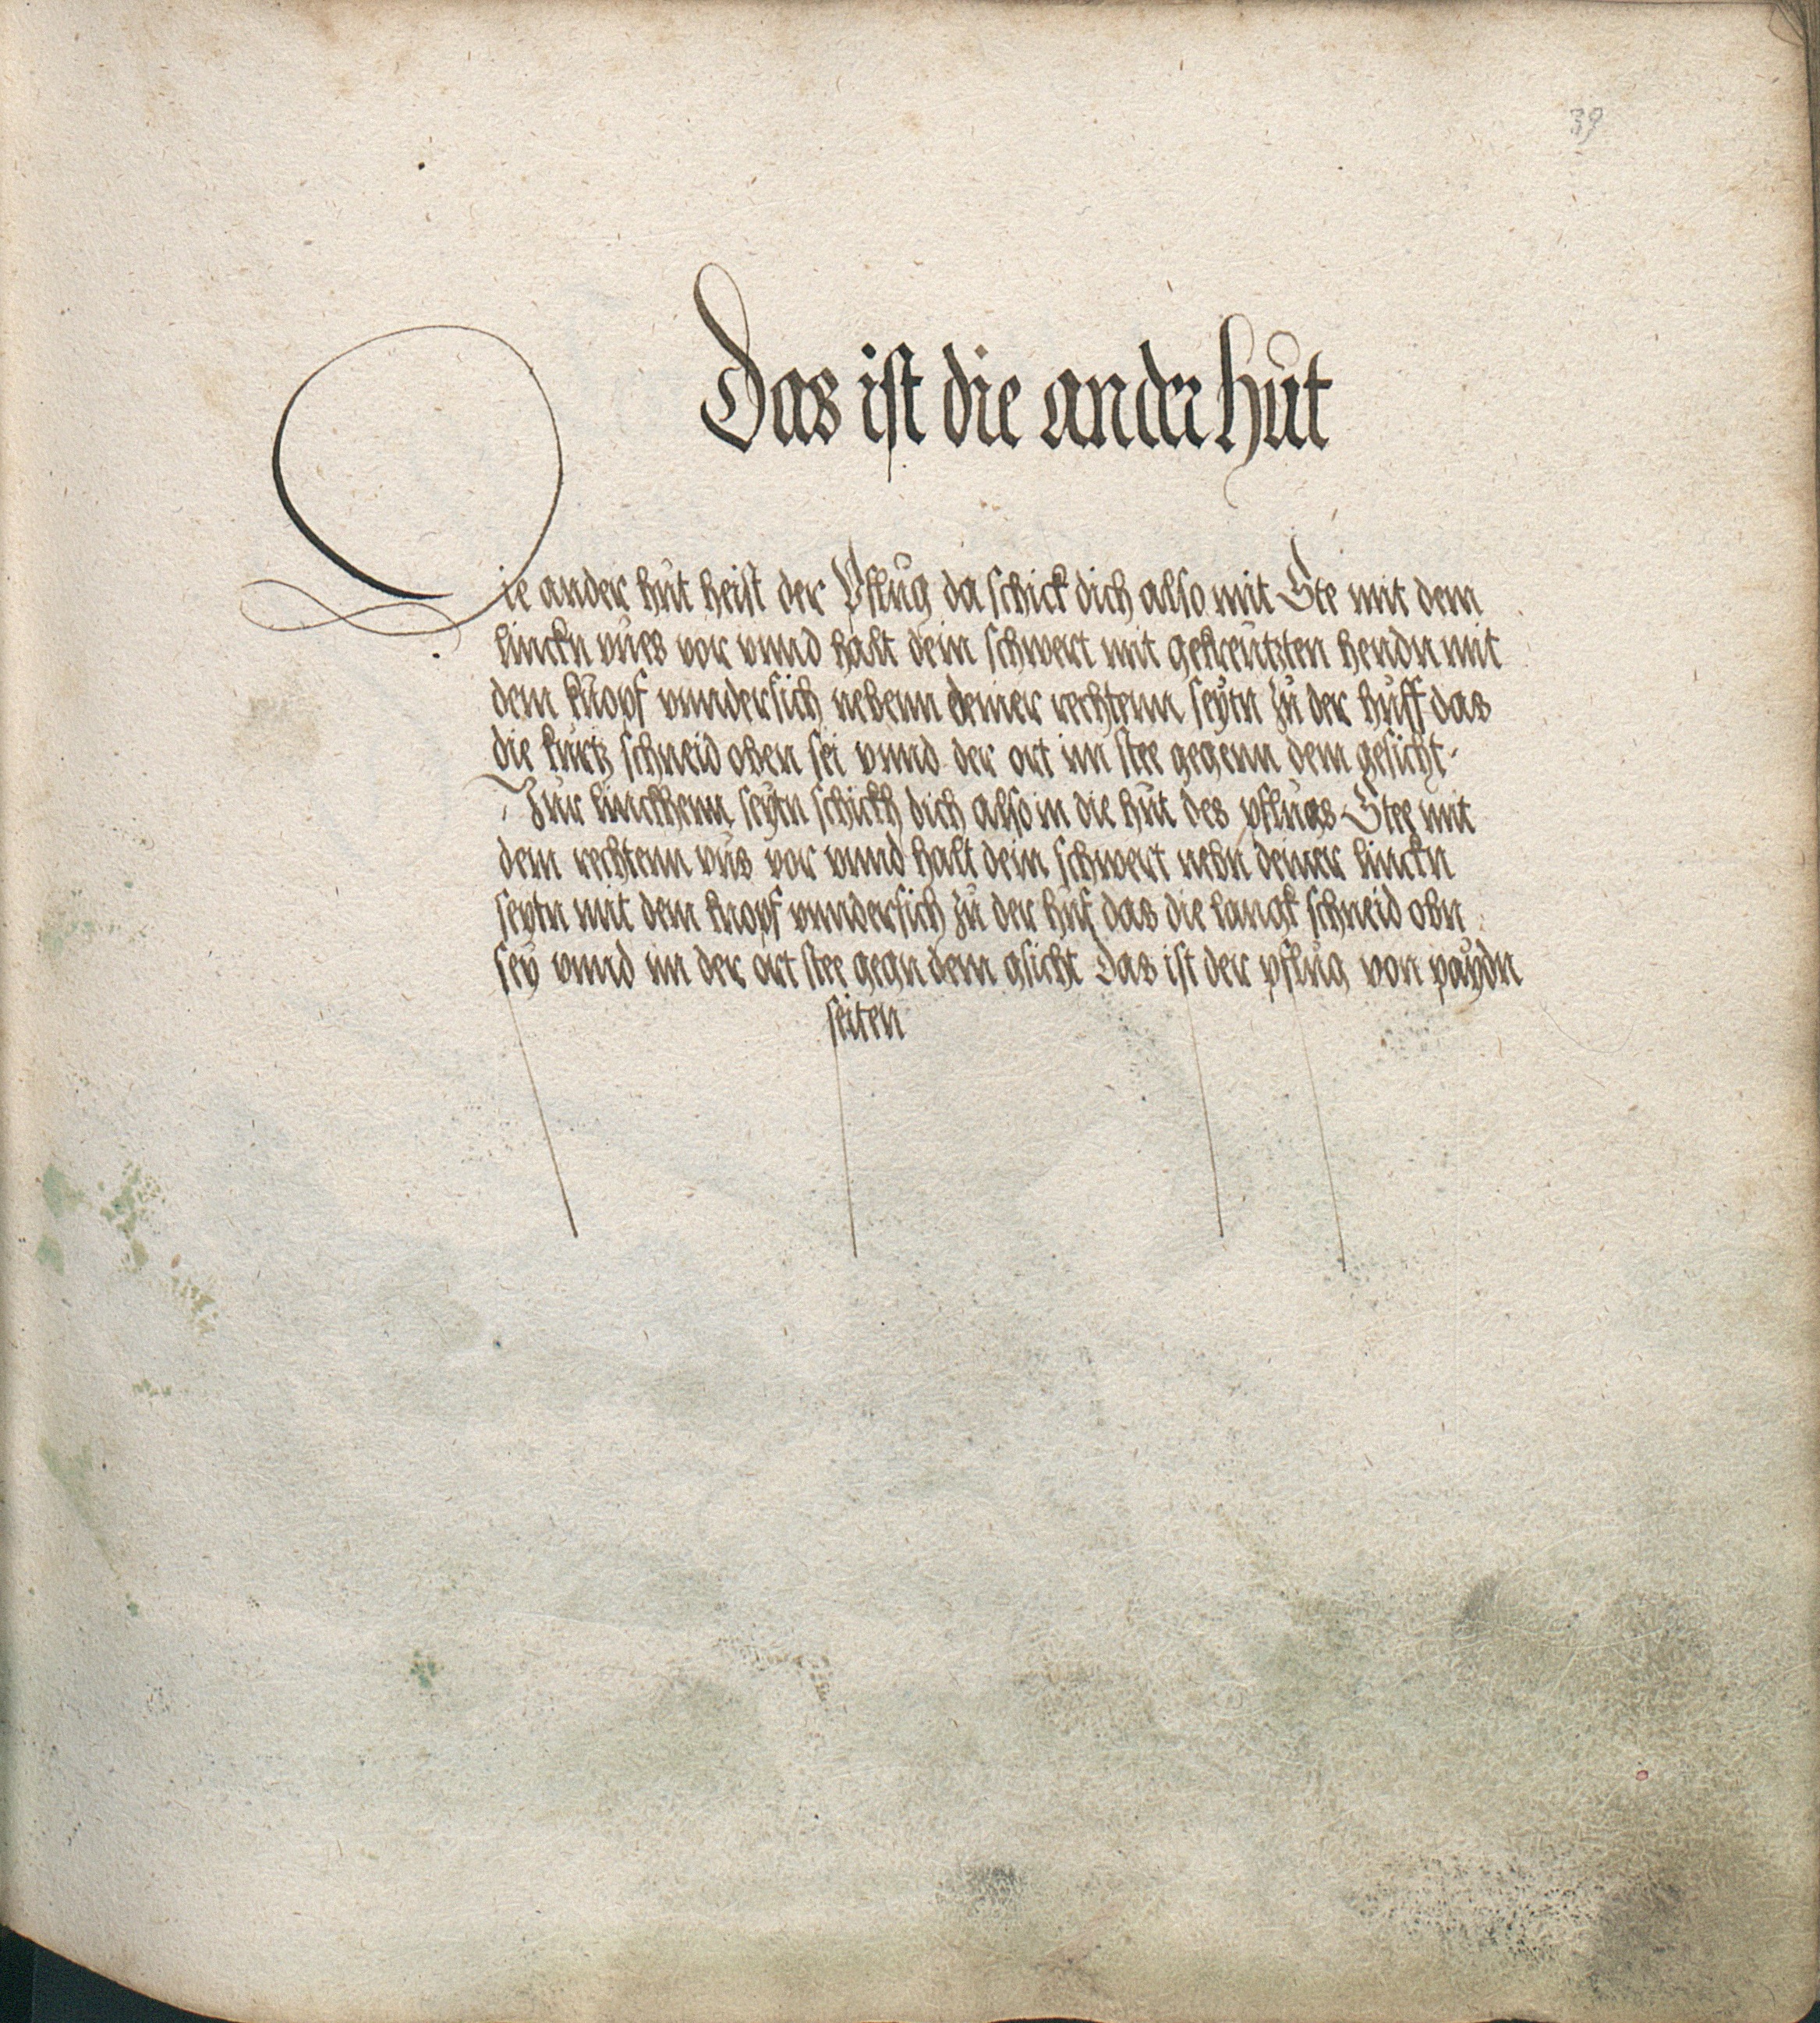 39
Das ist die ander hut
Die ander hut heist der Pflug da schick dich also mit Ste mit dem
linckn vues vor vnnd halt dein schwert mit gekreutzten hendn mit
dem knopf vnndersich nebenn deiner rechtenn seytn zu der huff das
die kurtz schneid oben sei vnnd der ort im stee gegenn dem gesicht
Zur linckhenn seytn schickh dich also in die hut des pflugs Stee mit
dem rechtenn vus vor vnnd halt dein schwert nebn deiner linckn
seytn mit dem knopf vndersich zu der huf das die langk schneid obn
sey vnnd im der ort stee gegn dem gsicht Das ist der pflug von paydn
seiten